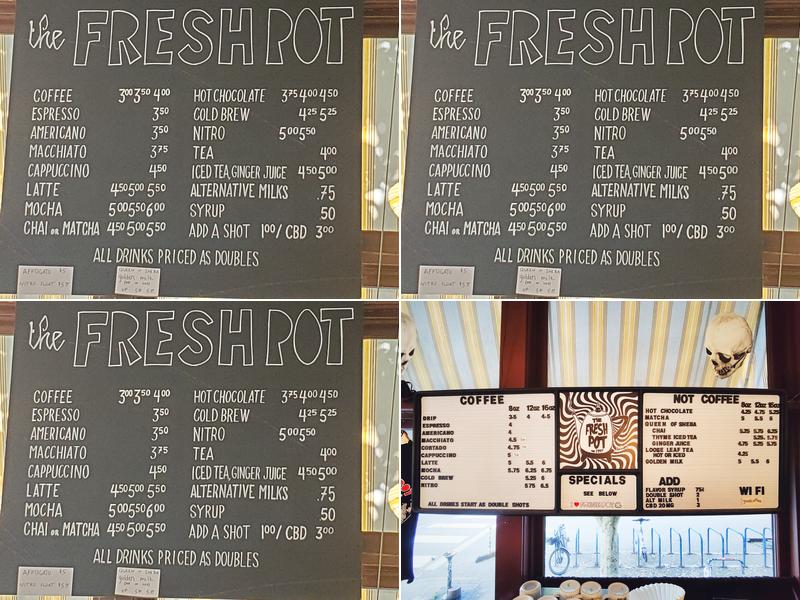 the FRESH POT
COFFEE 3⁰⁰ 3⁵⁰ 4⁰⁰
ESPRESSO 3⁵⁰
AMERICANO 3⁵⁰
MACCHIATO 3⁷⁵
CAPPUCCINO 4⁵⁰
LATTE 4⁵⁰ 5⁰⁰ 5⁵⁰
MOCHA 5⁰⁰ 5⁵⁰ 6⁰⁰
CHAI OR MATCHA 4⁵⁰ 5⁰⁰ 5⁵⁰
HOT CHOCOLATE 3⁷⁵ 4⁰⁰ 4⁵⁰
COLD BREW 4²⁵ 5²⁵
NITRO 5⁰⁰ 5⁵⁰
TEA 4⁰⁰
ICED TEA, GINGER JUICE 4⁵⁰ 5⁰⁰
ALTERNATIVE MILKS .75
SYRUP .50
ADD A SHOT 1⁰⁰/ CBD 3⁰⁰
ALL DRINKS PRICED AS DOUBLES
AFFOGATO $5
NITRO FLOAT
QUEEN of SHEBA
golden milk
the FRESH POT
COFFEE 3⁰⁰ 3⁵⁰ 4⁰⁰
ESPRESSO 3⁵⁰
AMERICANO 3⁵⁰
MACCHIATO 3⁷⁵
CAPPUCCINO 4⁵⁰
LATTE 4⁵⁰ 5⁰⁰ 5⁵⁰
MOCHA 5⁰⁰ 5⁵⁰ 6⁰⁰
CHAI OR MATCHA 4⁵⁰ 5⁰⁰ 5⁵⁰
HOT CHOCOLATE 3⁷⁵ 4⁰⁰ 4⁵⁰
COLD BREW 4²⁵ 5²⁵
NITRO 5⁰⁰ 5⁵⁰
TEA 4⁰⁰
ICED TEA, GINGER JUICE 4⁵⁰ 5⁰⁰
ALTERNATIVE MILKS .75
SYRUP .50
ADD A SHOT 1⁰⁰/ CBD 3⁰⁰
ALL DRINKS PRICED AS DOUBLES
AFFOGATO $5
NITRO FLOAT
QUEEN of SHEBA
golden milk
the FRESH POT
COFFEE 3⁰⁰ 3⁵⁰ 4⁰⁰
ESPRESSO 3⁵⁰
AMERICANO 3⁵⁰
MACCHIATO 3⁷⁵
CAPPUCCINO 4⁵⁰
LATTE 4⁵⁰ 5⁰⁰ 5⁵⁰
MOCHA 5⁰⁰ 5⁵⁰ 6⁰⁰
CHAI OR MATCHA 4⁵⁰ 5⁰⁰ 5⁵⁰
HOT CHOCOLATE 3⁷⁵ 4⁰⁰ 4⁵⁰
COLD BREW 4²⁵ 5²⁵
NITRO 5⁰⁰ 5⁵⁰
TEA 4⁰⁰
ICED TEA, GINGER JUICE 4⁵⁰ 5⁰⁰
ALTERNATIVE MILKS .75
SYRUP .50
ADD A SHOT 1⁰⁰/ CBD 3⁰⁰
ALL DRINKS PRICED AS DOUBLES
AFFOGATO $5
NITRO FLOAT
QUEEN of SHEBA
golden milk
COFFEE
8oz 12oz 16oz
DRIP 3.5 4 4.5
ESPRESSO 4
AMERICANO 4
MACCHIATO 4.5
CORTADO 4.75
CAPPUCCINO 5
LATTE 5 5.5 6
MOCHA 5.75 6.25 6.75
COLD BREW 5.25 6
NITRO 5.75 6.5
ALL DRINKS START AS DOUBLE SHOTS
THE FRESH POT
SPECIALS
SEE BELOW
NOT COFFEE
8oz 12oz 16oz
HOT CHOCOLATE 4.25 4.75 5.25
MATCHA 5 5.5 6
QUEEN OF SHEBA
CHAI 5.25 5.75 6.25
THYME ICED TEA 5.25 5.75
GINGER JUICE 4.75 5.25 5.75
LOOSE LEAF TEA
HOT OR ICED 4.25
GOLDEN MILK 5 5.5 6
ADD
FLAVOR SYRUP 75¢
DOUBLE SHOT 2
ALT MILK 1
CBD 20MG 3
WI FI